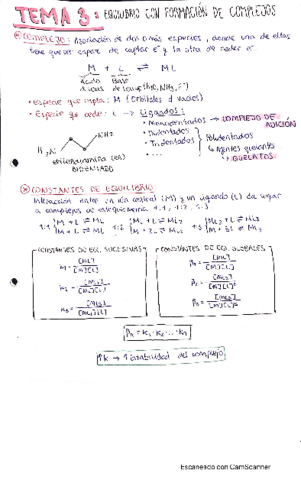 TEMA 3: EQUILIBRIO CON FORMACIÓN DE COMPLEJOS
COMPLEJO: Asociación de dos o más especies, donde una de ellas
tiene que ser capaz de captar e⁻ y la otra de ceder e⁻.
M + L ⇌ ML
Ácido Base
de Lewis de Lewis (H₂O, NH₃, F⁻)
• Especie que capta: M (Orbitales d vacíos)
• Especie que cede: L → Ligandos:
• Monodentados → COMPLEJO DE ADICIÓN
• Bidentados
• Tridentados
Polidentados
Agentes quelantes
QUELATOS
NH₂
etilendiamina (en)
BIDENTADO
CONSTANTES DE EQUILIBRIO
Interacción entre un ión central (M) y un ligando (L) da lugar
a complejos de estequiometría 1:1, 1:2, 1:3
1:1 M + L ⇌ ML
M + L ⇌ ML
1:2 ML + L ⇌ ML₂
M + 2L ⇌ ML₂
1:3 ML₂ + L ⇌ ML₃
M + 3L ⇌ ML₃
CONSTANTES DE EQ. SUCESIVAS
K₁ = [ML] / [M][L]
K₂ = [ML₂] / [ML][L]
K₃ = [ML₃] / [ML₂][L]
CONSTANTES DE EQ. GLOBALES
β₁ = [ML] / [M][L]
β₂ = [ML₂] / [M][L]²
β₃ = [ML₃] / [M][L]³
βₙ = K₁ · K₂ ... Kₙ
↑K → ↑ estabilidad del complejo
Escaneado con CamScanner